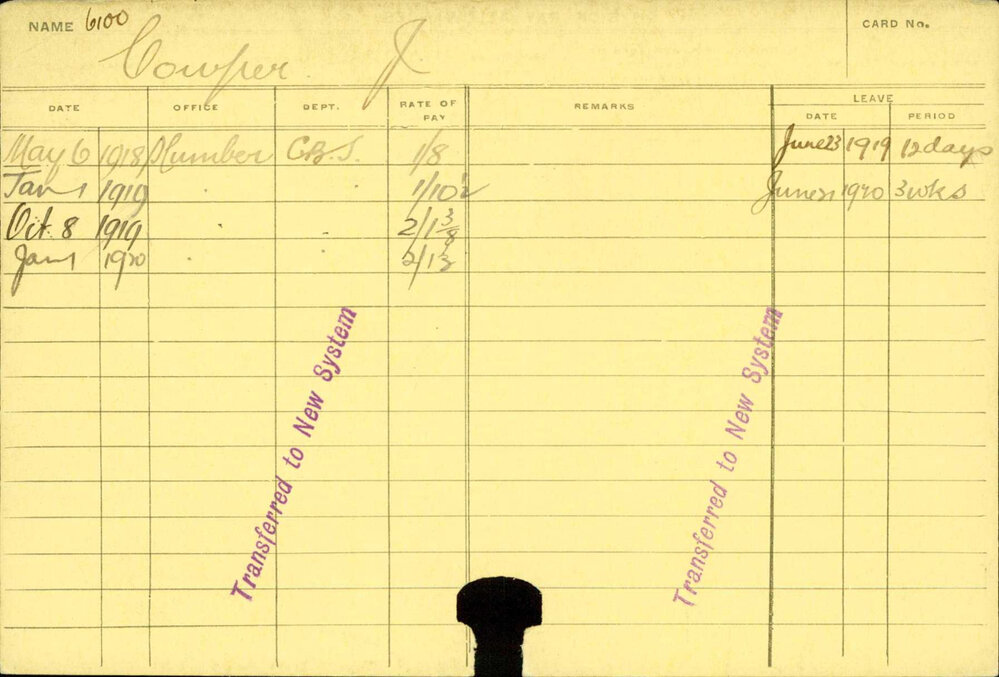 NAME 6100 CARD No.
Cowper J.
DATE OFFICE DEPT. RATE OF PAY REMARKS LEAVE
DATE PERIOD
May 6 1918 Plumber C.B.S. 1/8 June 23 1919 12 days
Jan 1 1919 " " 1/10½ June 21 1920 3 wks
Oct 8 1919 " " 2/1 3/8
Jan 1 1920 " " 2/1½
Transferred to New System
Transferred to New System